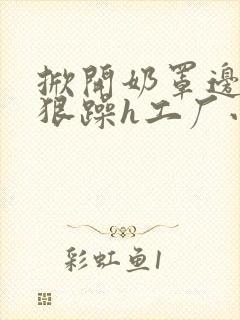 掀開奶罩邊
狠躁h工厂
彩虹鱼1